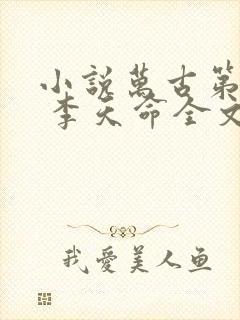 小説萬古第
李天命全文
我愛美人鱼